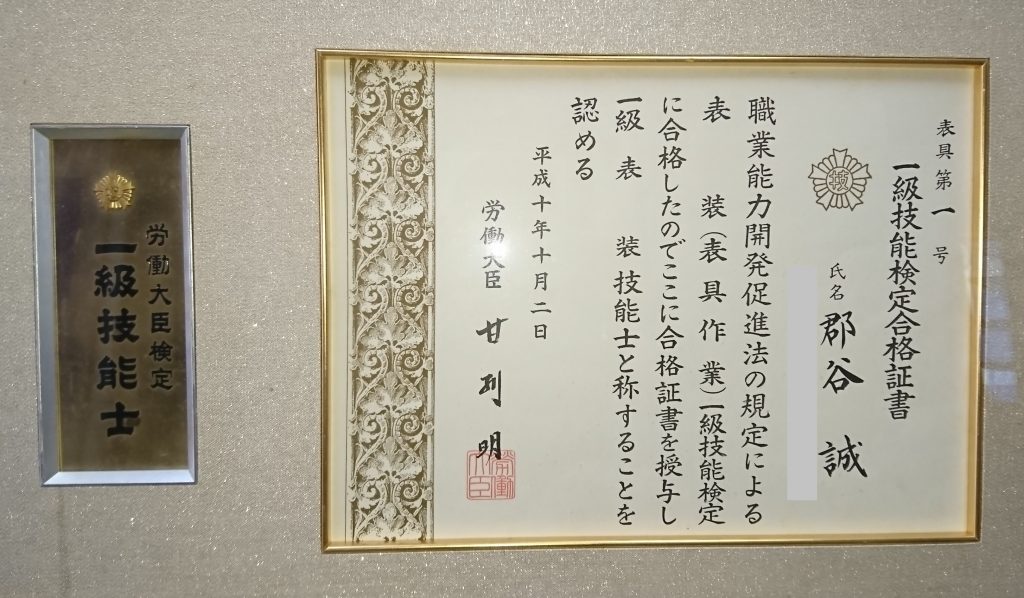 表具第一号
一級技能検定合格証書
氏名 郡谷 誠
職業能力開発促進法の規定による
表装(表具作業)一級技能検定
に合格したのでここに合格証書を授与し
一級表装技能士と称することを
認める
平成十年十月二日
労働大臣 甘利 明
労働大臣
労働大臣検定
一級技能士